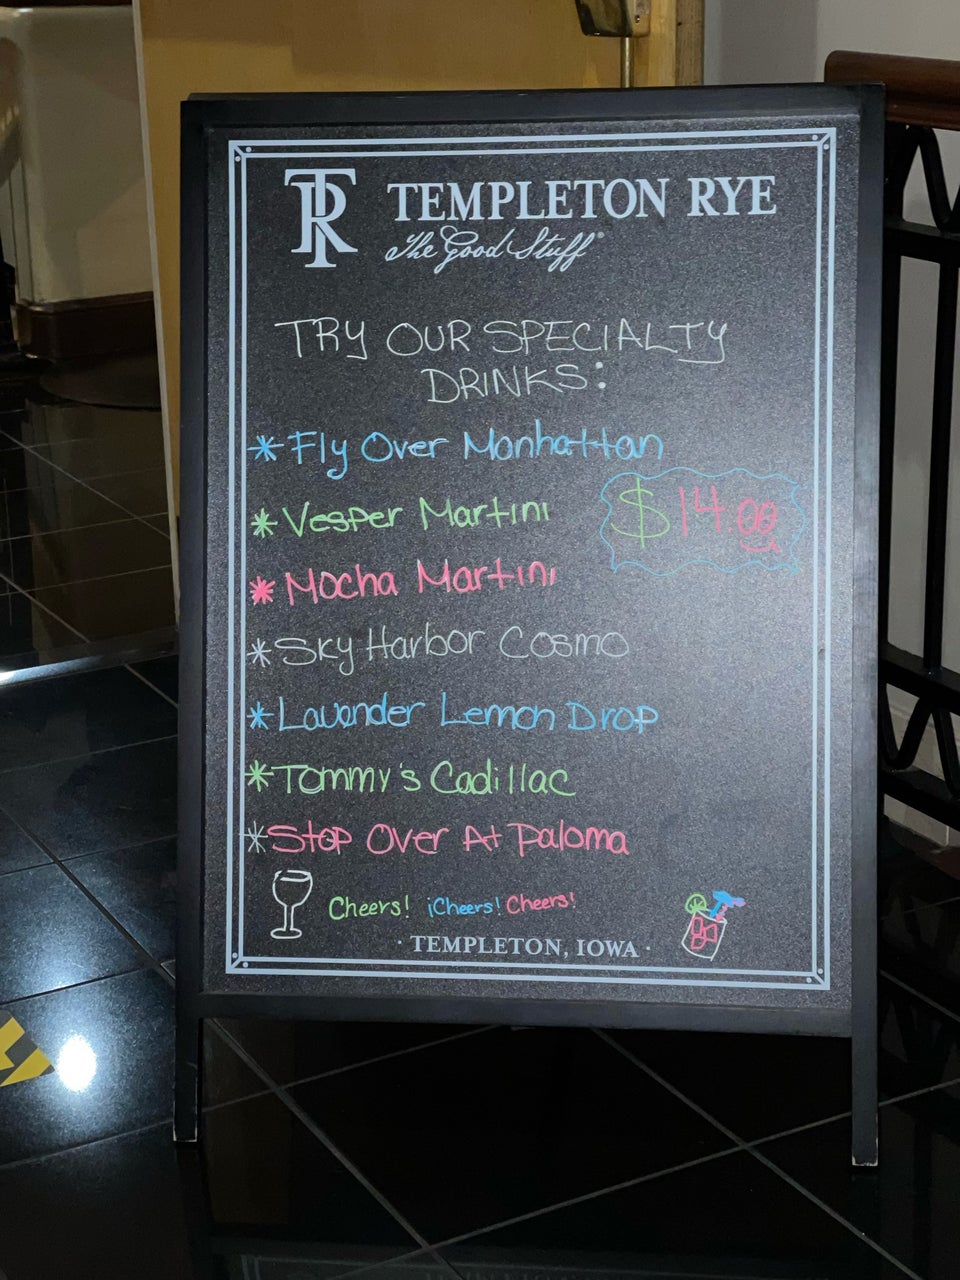 TR TEMPLETON RYE
The Good Stuff®
TRY OUR SPECIALTY
DRINKS:
* Fly Over Manhattan
* Vesper Martini
$14.00
* Mocha Martini
* Sky Harbor Cosmo
* Lavender Lemon Drop
* Tommy's Cadillac
* Stop Over At Paloma
Cheers! ¡Cheers! Cheers!
· TEMPLETON, IOWA ·